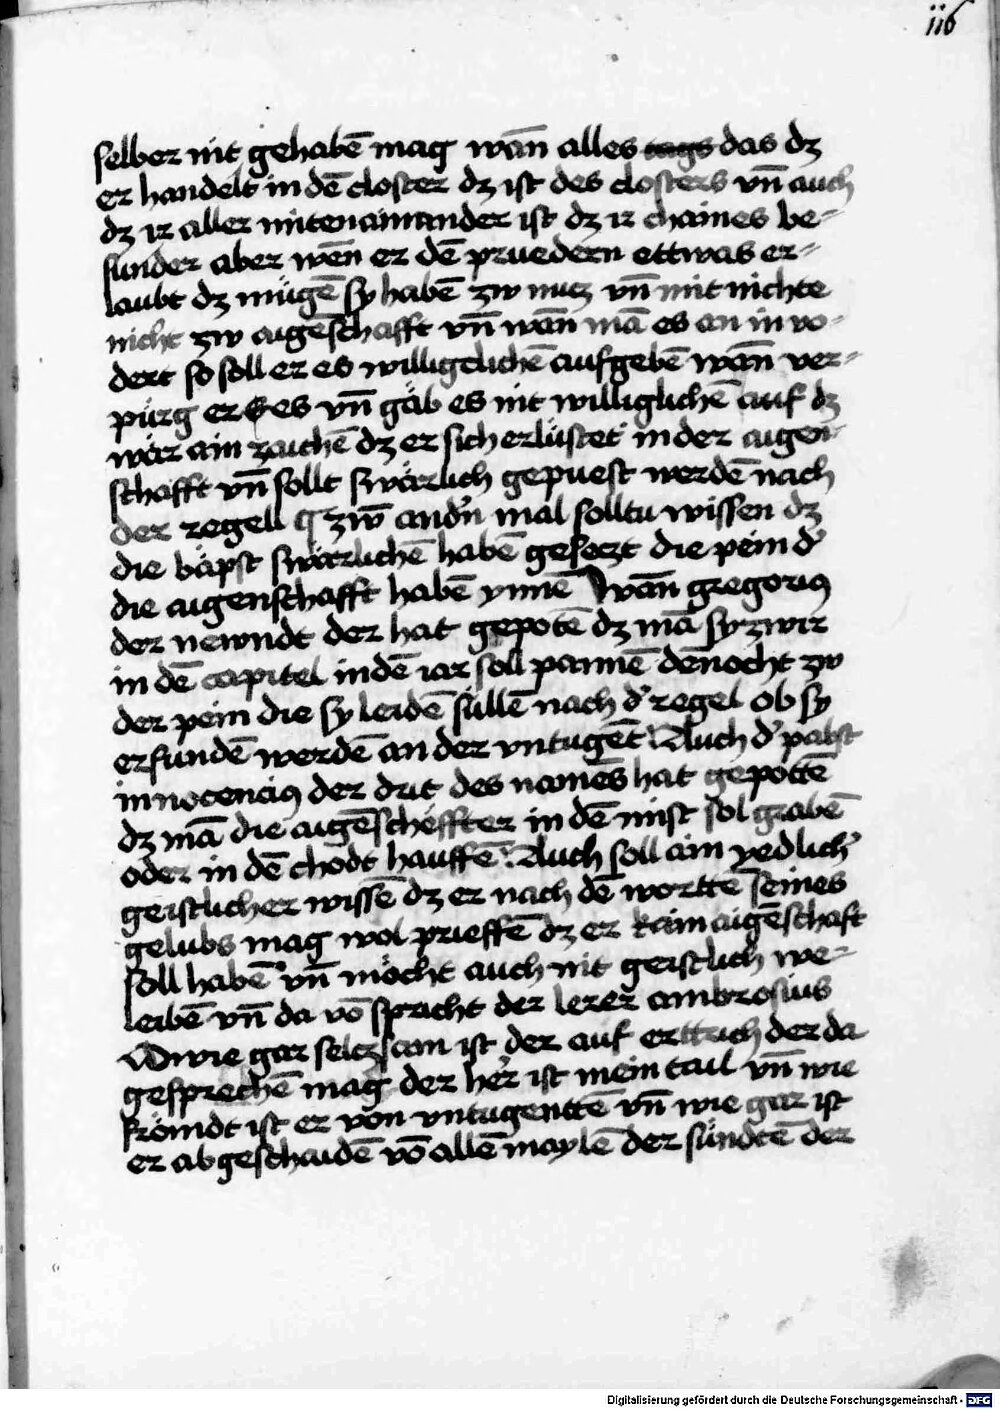 116
selber nit gehabē mag wān alles tags das dz
er handelt in dē closter dz ist des closters vn̄ auch
dz ir aller mitenainander ist dz ir chaines be-
sunder aber wen̄ er dē pruedern ettwas er-
laubt dz mügē sy habē zw nucz vn̄ mit nichte
nicht zw aigēschafft vn̄ wān mā es an in vo-
dert so soll er es willigclichē aufgebē wān ver-
pürg er es vn̄ gäb es nit williglichē auf dz
wär ain zaichē dz er sich erlüstet in der aigen-
schafft vn̄ sollt swärlich gepuest werdē nach
der regell zw̄ andn̄ mal solltu wissen dz
die bäpst swärlichē habē geseczt die pein d'
die aigenschafft habē ynnē Wān gregorius
der newndt der hat gepotē dz mā sy zwir
in dē capitel in dē iar soll pannē dēnocht zw
der pein die sy leidē süllē nach d' regel ob sy
erfundē werdē an der vntugēt Auch d' pabst
innocencius der drit des namēs hat gepottē
dz mā die aigēscheffter in dē mist sol grabē
oder in dē chodt hauffē Auch soll ain yedlich'
geistlicher wissē dz er nach dē worttē seines
gelubs mag wol prieffē dz er kain aigēschaft
soll habē vn̄ möcht auch nit geistlich we-
leibē vn̄ da vō spricht der lerer ambrosius
O wie gar selczsam ist der auf erttrich der da
gesprechē mag der her ist mein tail vn̄ wie
frömdt ist er von vntugenttē vn̄ wie gar ist
er abgeschaidē vō allē maylē der sündtē der
Digitalisierung gefördert durch die Deutsche Forschungsgemeinschaft - DFG